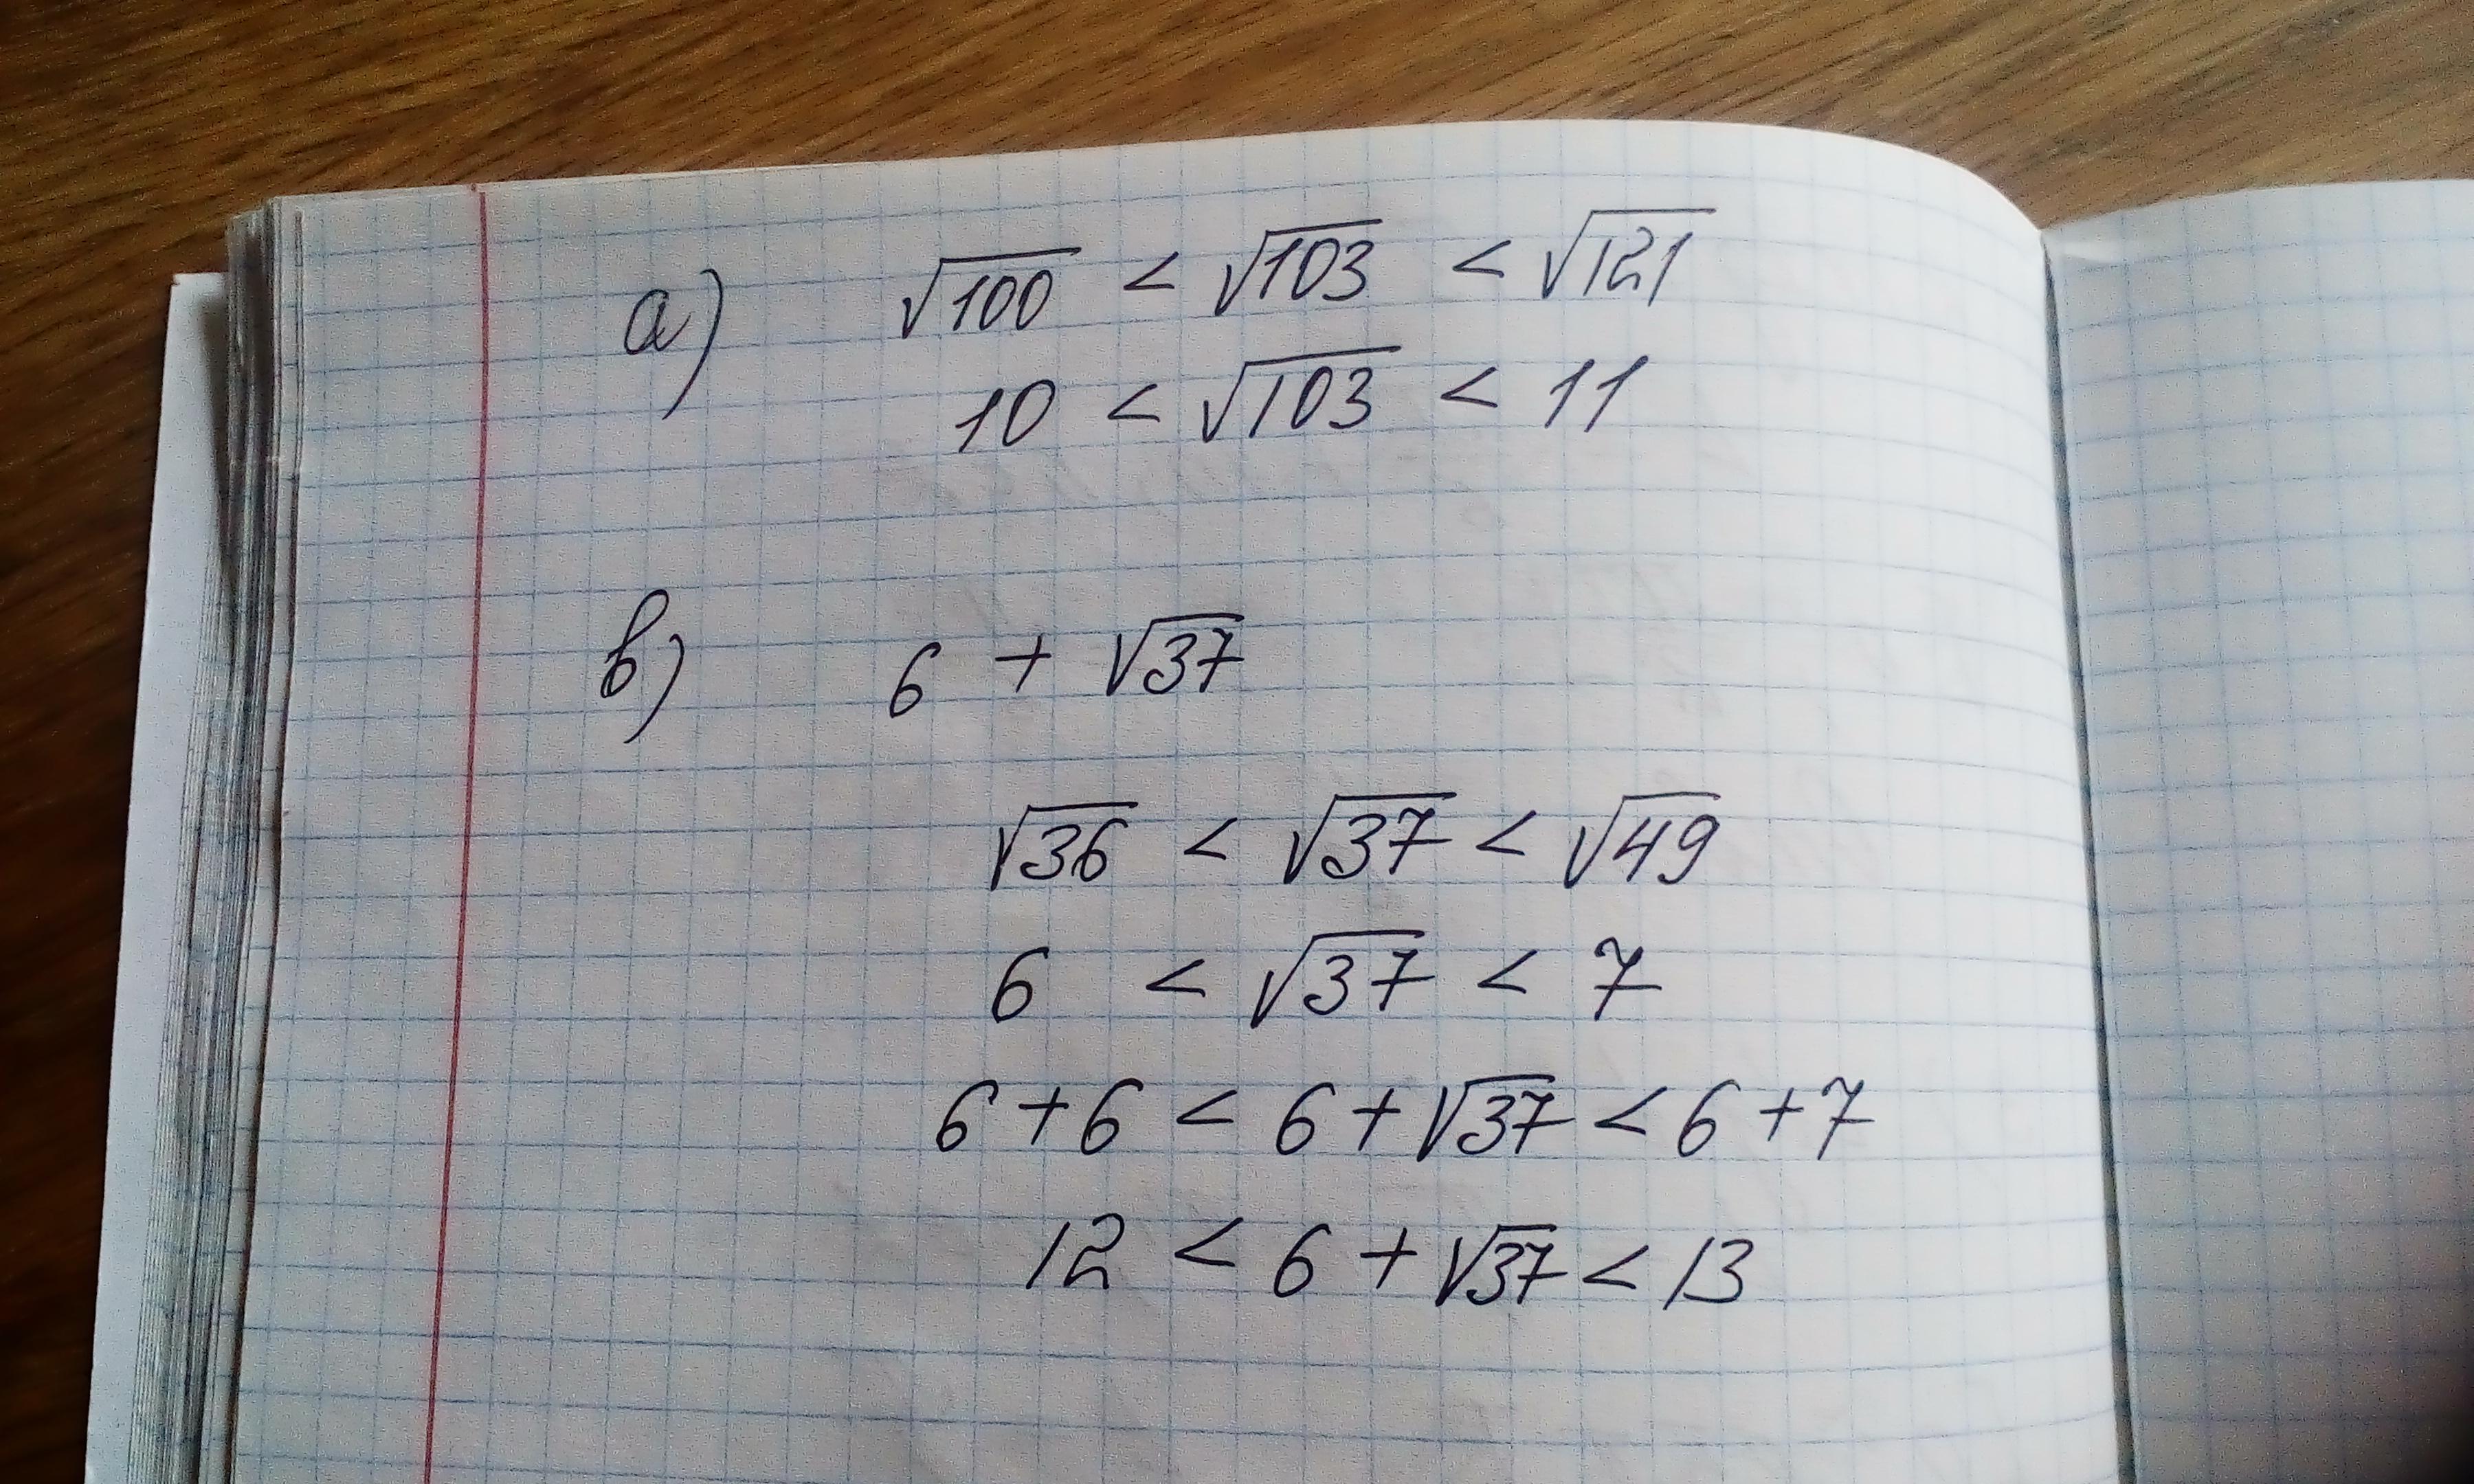 а) √100 < √103 < √121
10 < √103 < 11
в) 6 + √37
√36 < √37 < √49
6 < √37 < 7
6 + 6 < 6 + √37 < 6 + 7
12 < 6 + √37 < 13